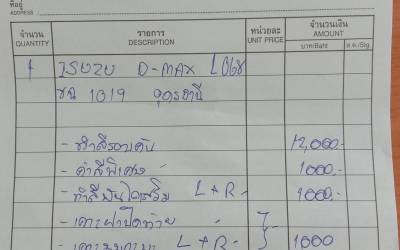 ที่อยู่
ADDRESS
จำนวน รายการ หน่วยละ จำนวนเงิน
QUANTITY DESCRIPTION UNIT PRICE AMOUNT
บาท/Baht ส.ต./Stg.
1 ISUZU D-MAX
1019 อุดรธานี
- ทำสีรอบคัน 12,000.-
- ค่าสีพิเศษ 1000.-
- ทำสีบันได L+R- 1000.-
- เคาะฝาปิดท้าย
- เคาะ L+R 1000